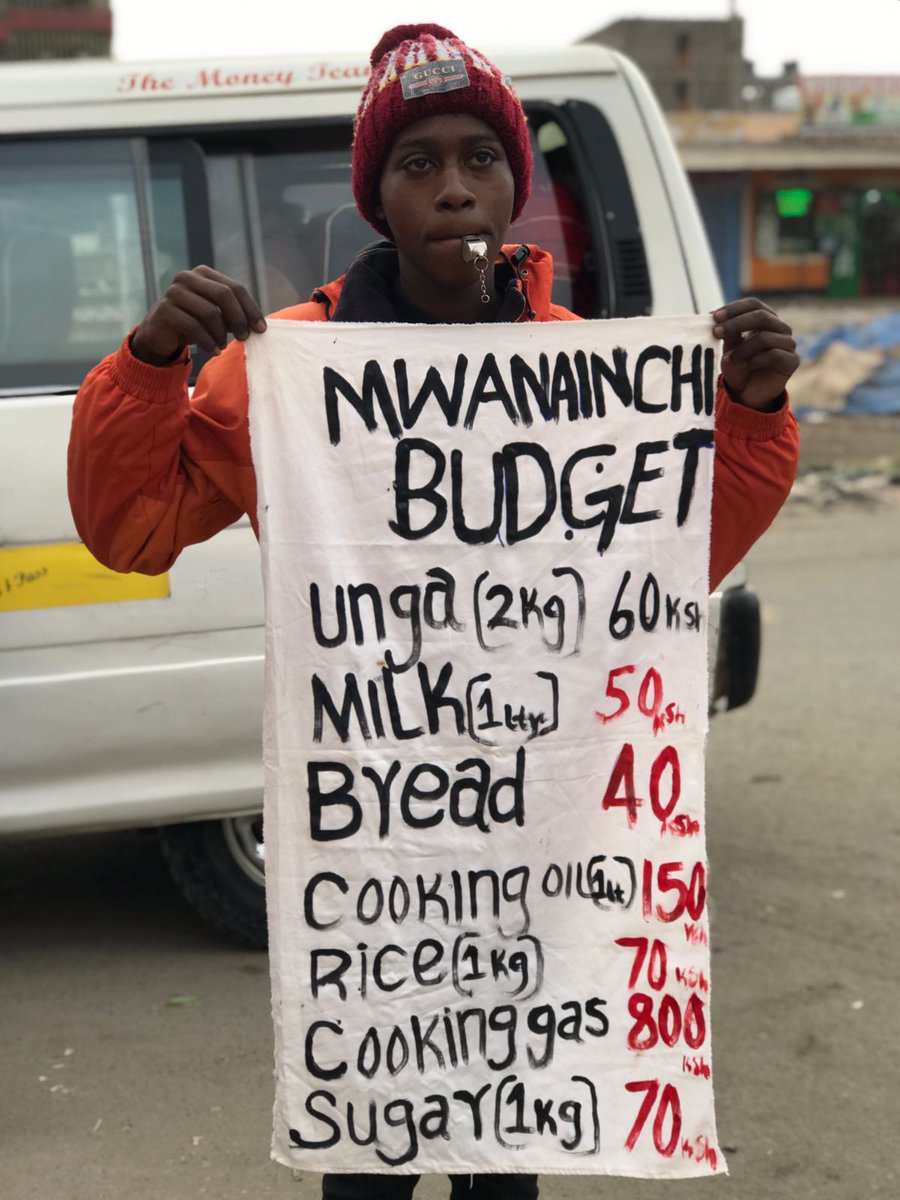 The Money Tea
GUCCI
MWANAINCHI
BUDGET
unga (2kg) 60 Ksh
MiLK (1 Ltr) 50 Ksh
Bread 40 Ksh
Cooking OIL (1Lt) 150 Ksh
Rice (1kg) 70 Ksh
Cooking gas 800 Ksh
Sugar (1kg) 70 Ksh